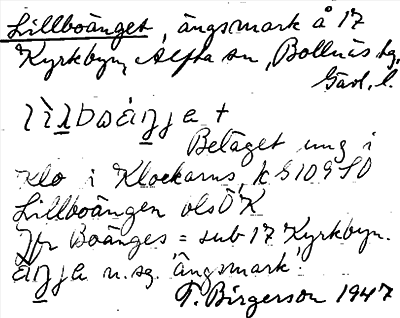 Lillboänget, ängsmark å 17
Kyrkbyn, Alfta sn, Bollnäs tg,
Gävl. l.
Beläget ung i
i Klockarns, k S 109 SO
Lillboängen olsÖK
Jfr Boänges = sub 17 Kyrkbyn.
n. sg. 'ängsmark'.
T. Birgerson 1947